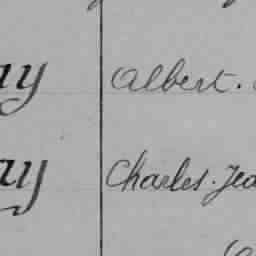 ay Albert.
ay Charles. Jea